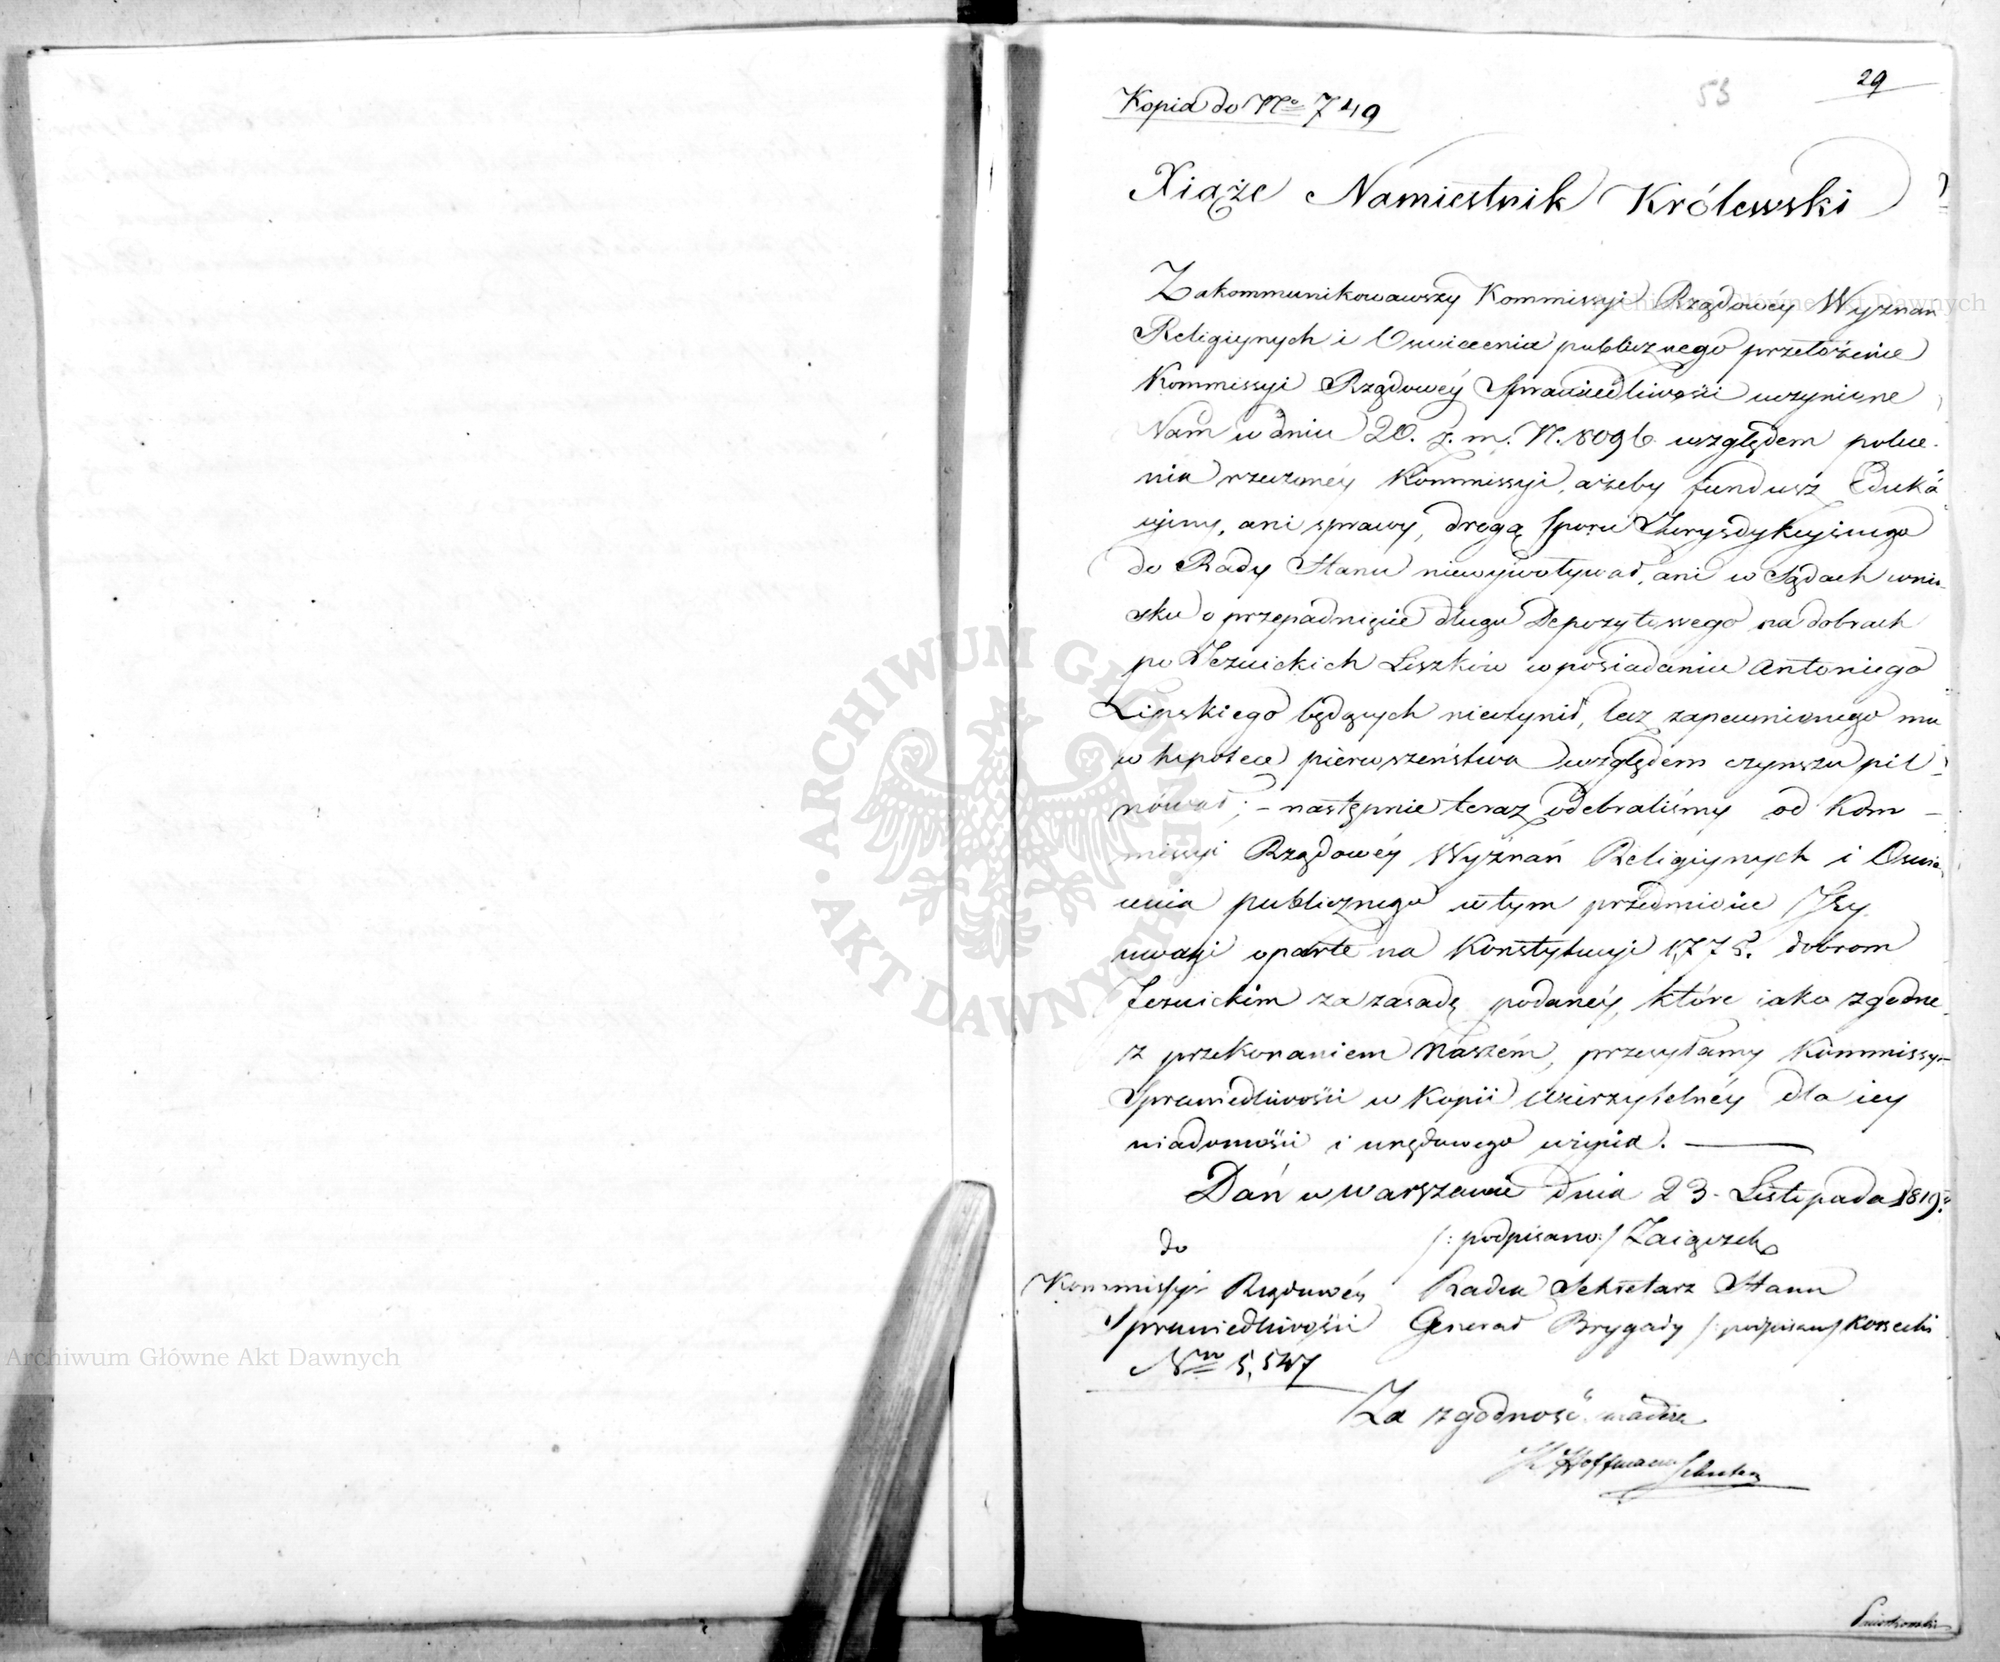 29
53
Kopia do No 749
Xiąże Namiestnik Królewski
Zakommunikowawszy Kommissyi Rządowéy Wyznań
Religiynych i Oswiecenia publicznego przełożenie
Kommissyi Rządowéy Sprawiedliwości uczynione
Nam w dniu 20. z. m. N. 8096 względem polece-
nia rzeczonéy Kommissyi, ażeby fundusz Eduka
cyiny, ani sprawy, drogą sporu Jurysdykcyinego
do Rady Stanu niewywoływał, ani w Sądach wnio-
sku o przepadnięcie długu Depozytowego na dobrach
po Jezuickich Liszków w posiadaniu Antoniego
Lipskiego będących nieczynił, lecz zapewnionego mu
w hipotece pierwszeństwa względem czynszu pil
nował; – następnie teraz odebraliśmy od Kom-
missyi Rządowéy Wyznań Religiynych i Oswie
cenia publicznego w tym przedmiocie
uwagi oparte na Konstytucyi 1775. dobrom
Jezuickim za zasadę podanéy, które iako zgodne
z przekonaniem Naszém, przesyłamy Kommissyi
Sprawiedliwości w Kopii wierzytelnéy dla iey
wiadomości i urzędowego użycia. —
Dań w Warszawie dnia 23. Listopada 1819.
/: podpisano :/ Zaiączek
do
Kommissyi Rządowéy
Sprawiedliwości
Nro 5,547
Radca Sekretarz Stanu
Generał Brygady /: podpisano / Kossecki
Za zgodność
Hoffmann Sekretarz
Archiwum Główne Akt Dawnych
Archiwum Główne Akt Dawnych
ARCHIWUM GŁÓWNE AKT DAWNYCH